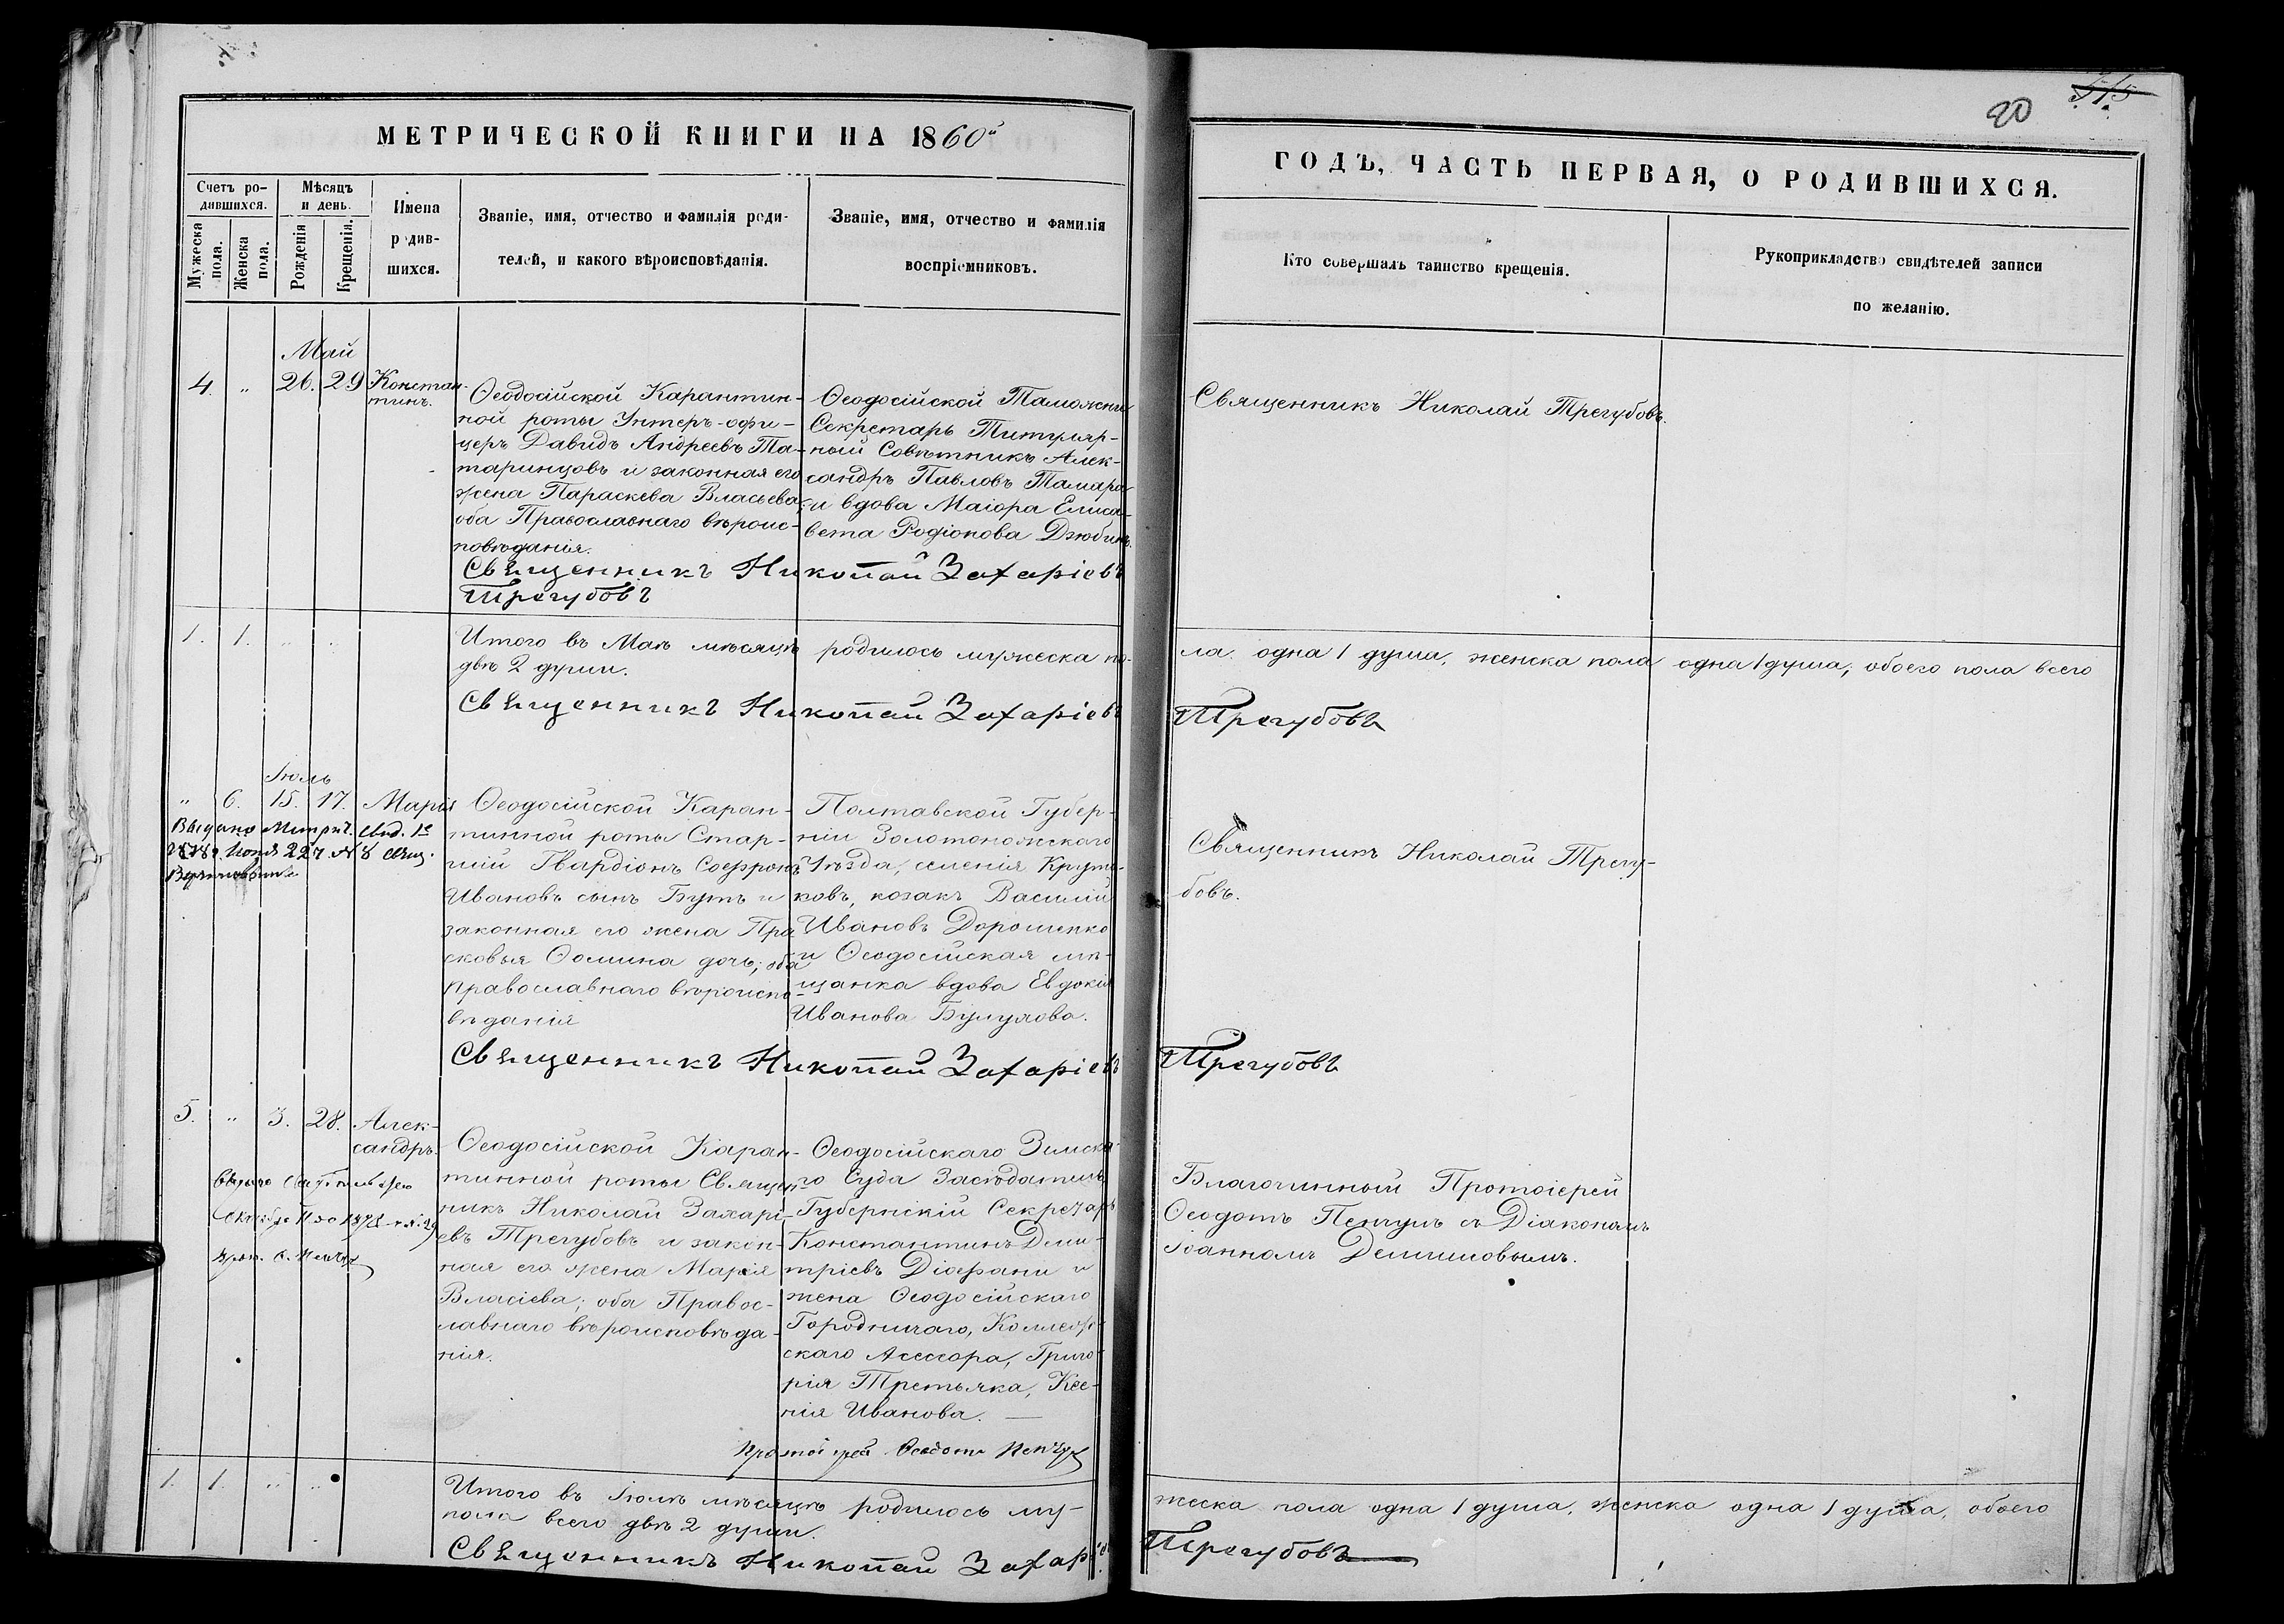 20
МЕТРИЧЕСКОЙ КНИГИ НА 1860й
ГОДЪ, ЧАСТЬ ПЕРВАЯ, О РОДИВШИХСЯ.
Счетъ ро-
дившихся.
Мужеска
пола.
Женска
пола.
Мѣсяцъ
и день.
Рожденія
Крещенія.
Имена
родив-
шихся.
Званіе, имя, отчество и фамилія роди-
телей, и какого вѣроисповѣданія.
Званіе, имя, отчество и фамилія
воспріемниковъ.
Кто совершалъ таинство крещенія.
Рукоприкладство свидѣтелей записи
по желанію.
Май
4. „ 26. 29
Констан-
тинъ.
Ѳеодосійской Карантин-
ной роты Унтеръ-офи-
церъ Давидъ Андреевъ Та-
таринцовъ и законная его
жена Параскева Власьева,
оба Православнаго вѣроис-
повѣданія.
Ѳеодосійской Таможни
Секретарь Титуляр-
ный Совѣтникъ Алек-
сандръ Павловъ Тамара
и вдова Маіора Елиса-
вета Родіонова Дзюбинъ.
Священникъ Николай Трегубовъ.
Священникъ Николай Захаріевъ
Трегубовъ
1. 1. „ „
Итого въ Маѣ мѣсяцѣ родилось мужеска по-
ла одна 1 душа, женска пола одна 1 душа, обоего пола всего
двѣ 2 души.
Священникъ Николай Захаріевъ Трегубовъ
Іюль
„ 6. 15. 17. Марія
Выдано Метрич. свид.
Ѳеодосійской Каран-
тинной роты Стар-
шій Гвардіонъ Софронъ
Ивановъ сынъ Бутъ и
законная его жена Пра-
сковья Ѳомина дочь; оба
Православнаго вѣроиспо-
вѣданія
Полтавской Губер-
ніи Золотоножскаго
Уѣзда, селенія Крупь-
ковъ, козакъ Василій
Ивановъ Дорошенко
и Ѳеодосійская мѣ-
щанка вдова Евдокія
Иванова Булулова.
Священникъ Николай Трегу-
бовъ.
Священникъ Николай Захаріевъ Трегубовъ
5. „ 3. 28.
Алек-
сандръ.
Ѳеодосійской Каран-
тинной роты Священ-
никъ Николай Захарі-
евъ Трегубовъ и закон-
ная его жена Марія
Власіева; оба Правос-
лавнаго вѣроисповѣда-
нія.
Ѳеодосійскаго Земска-
го Суда Засѣдатель
Губернскій Секретарь
Константинъ Дми-
тріевъ Діафани и
жена Ѳеодосійскаго
Городничаго, Коллеж-
скаго Асессора, Григо-
рія Третьяка, Ксе-
нія Иванова.
Благочинный Протоіерей
Ѳеодотъ Пенчулъ съ Діакономъ
Іоанномъ Демишовымъ.
Протоіерей Ѳеодотъ Пенчулъ
1. 1. „ „
Итого въ Іюлѣ мѣсяцѣ родилось му-
жеска пола одна 1 душа, женска одна 1 душа, обоего
пола всего двѣ 2 души.
Священникъ Николай Захаріевъ Трегубовъ